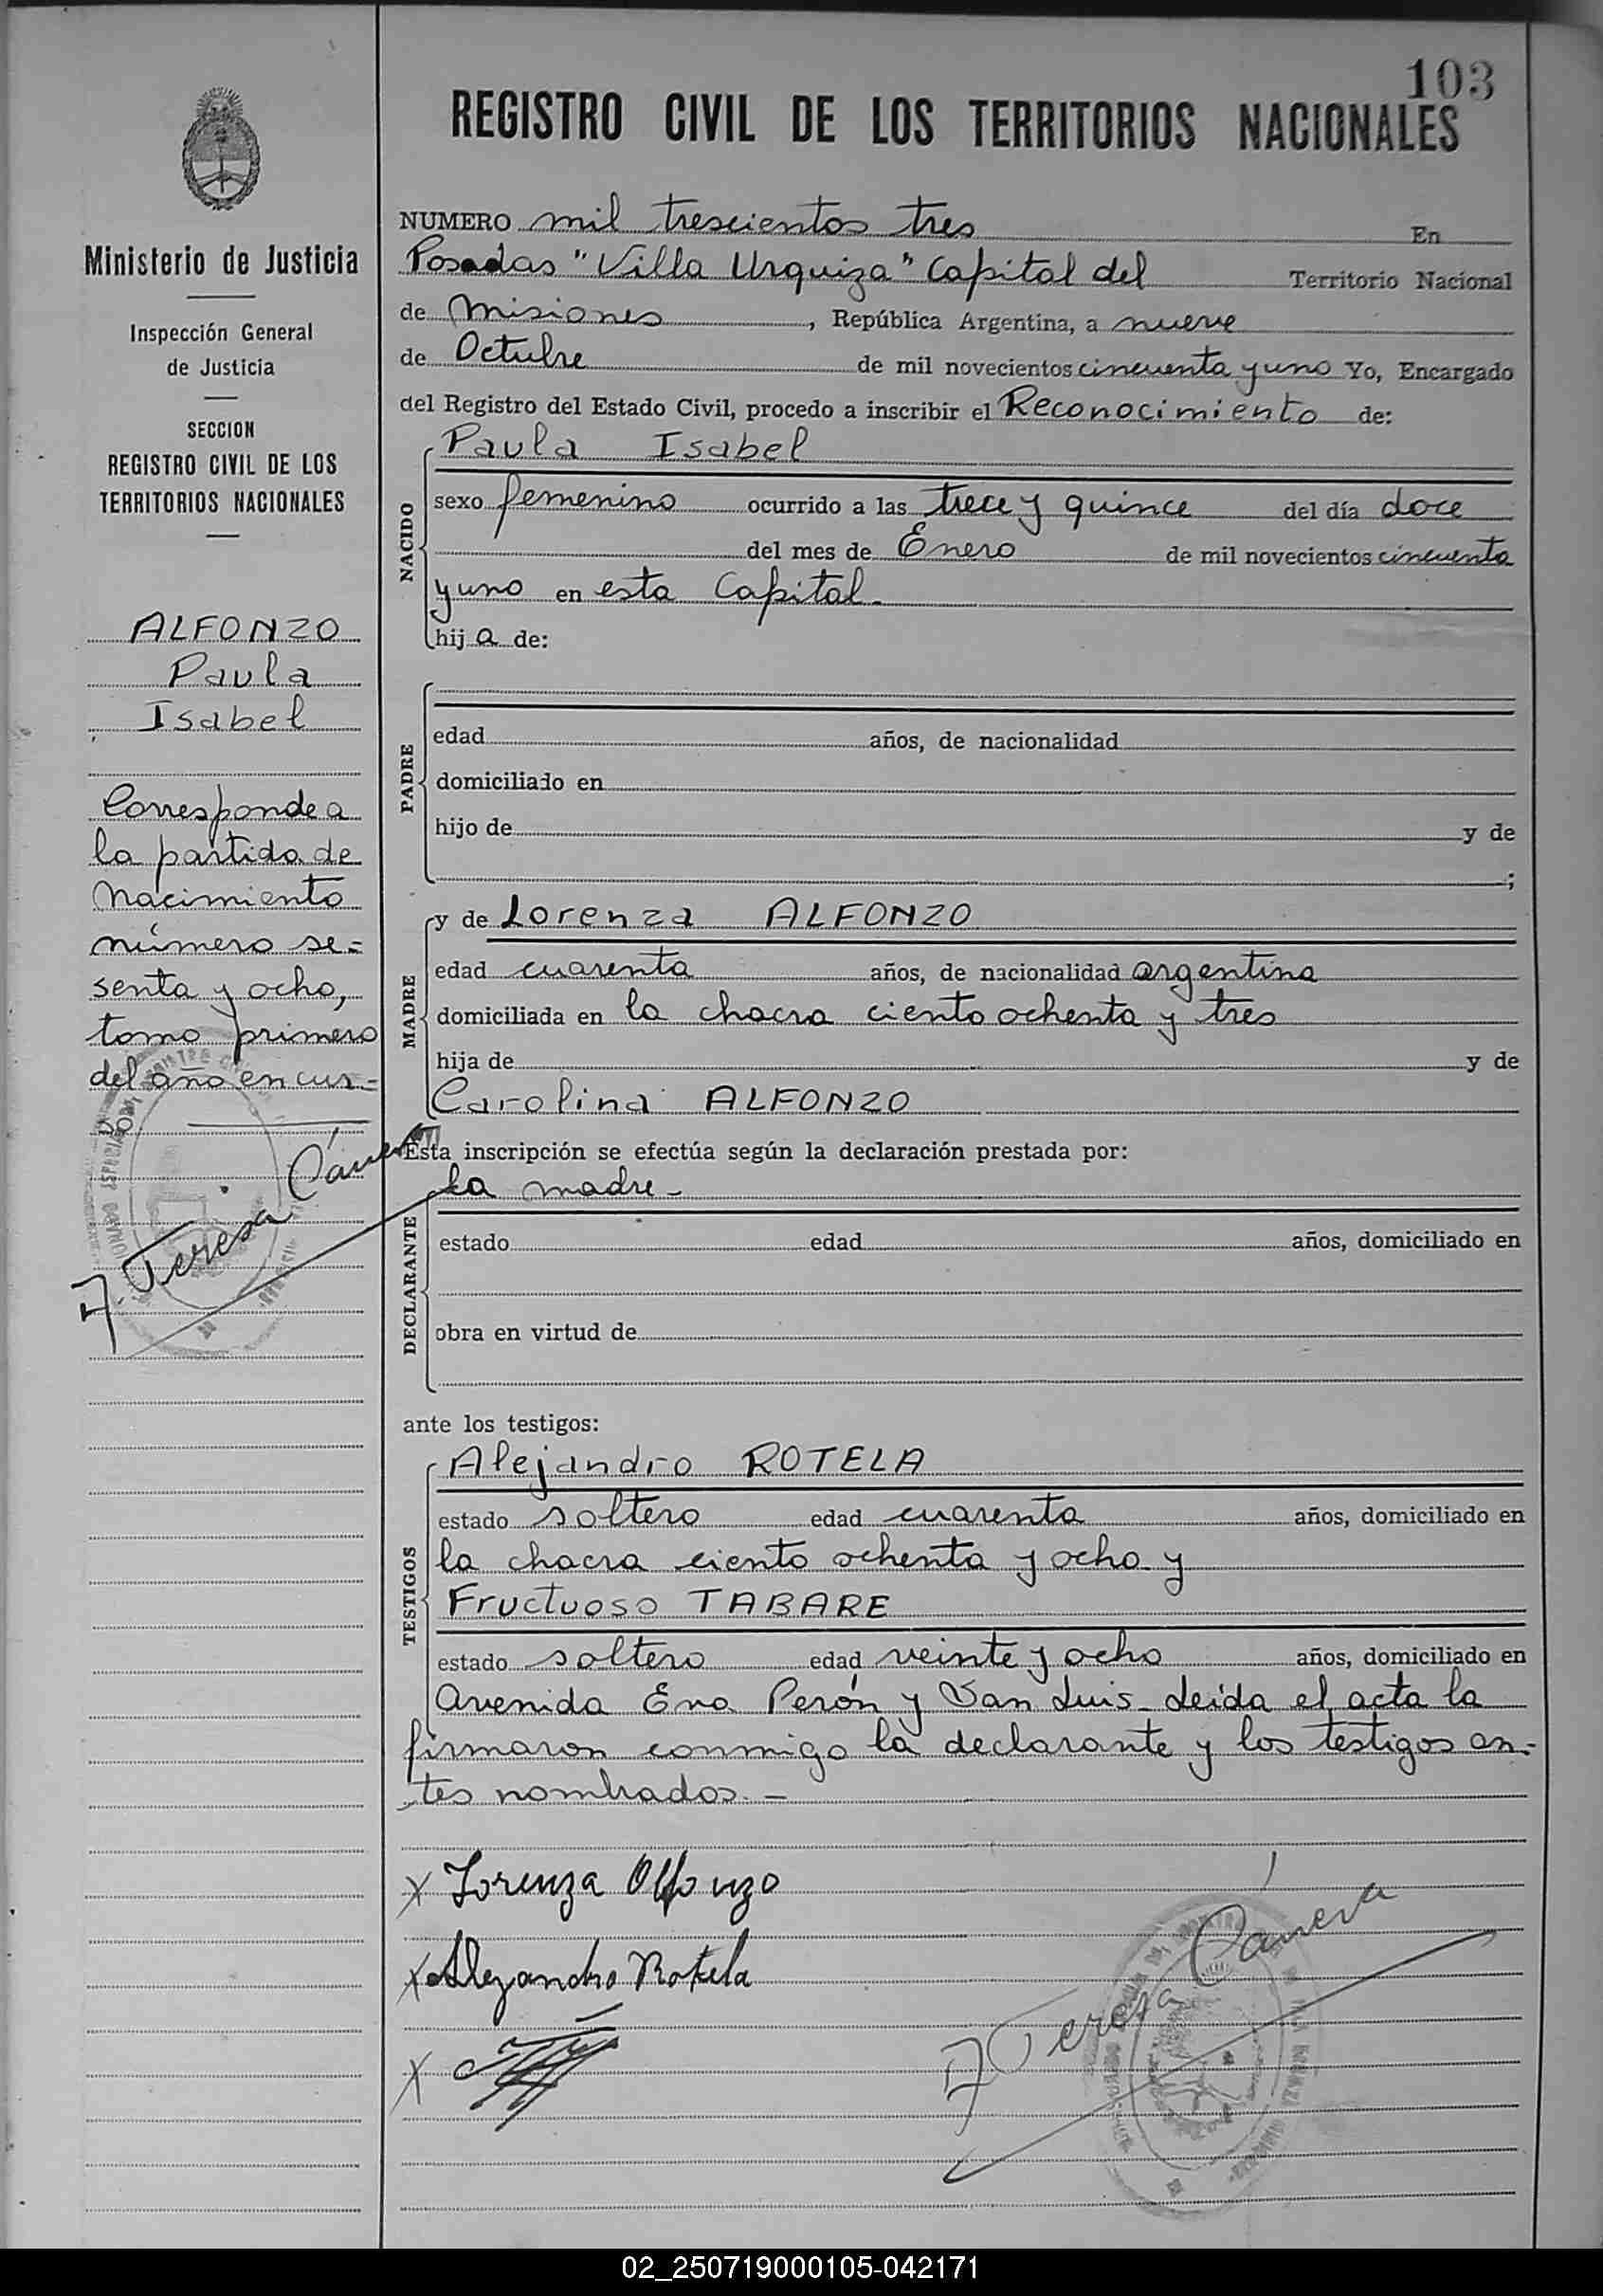 103
REGISTRO CIVIL DE LOS TERRITORIOS NACIONALES
Ministerio de Justicia
Inspección General
de Justicia
SECCION
REGISTRO CIVIL DE LOS
TERRITORIOS NACIONALES
ALFONZO
Paula
Isabel
Corresponde a
la partida de
nacimiento
número se=
senta y ocho,
tomo primero
del año en cur=
so.
A. Teresa Cánera
NUMERO mil trescientos tres En
Posadas "Villa Urquiza" Capital del Territorio Nacional
de Misiones, República Argentina, a nueve
de Octubre de mil novecientos cincuenta y uno Yo, Encargado
del Registro del Estado Civil, procedo a inscribir el Reconocimiento de:
NACIDO
Paula Isabel
sexo femenino ocurrido a las trece y quince del día doce
del mes de Enero de mil novecientos cincuenta
y uno en esta Capital.
hija de:
PADRE
edad años, de nacionalidad
domiciliado en
hijo de y de
;
MADRE
y de Lorenza ALFONZO
edad cuarenta años, de nacionalidad argentina
domiciliada en la chacra ciento ochenta y tres
hija de y de
Carolina ALFONZO
Esta inscripción se efectúa según la declaración prestada por:
DECLARANTE
la madre-
estado edad años, domiciliado en
obra en virtud de
ante los testigos:
TESTIGOS
Alejandro ROTELA
estado soltero edad cuarenta años, domiciliado en
la chacra ciento ochenta y ocho y
Fructuoso TABARE
estado soltero edad veinte y ocho años, domiciliado en
Avenida Eva Perón y San Luis- Leída el acta la
firmaron conmigo la declarante y los testigos an-
tes nombrados.-
x Lorenza Alfonzo
x Alejandro Rotela
x
A Teresa Cánera
02_250719000105-042171